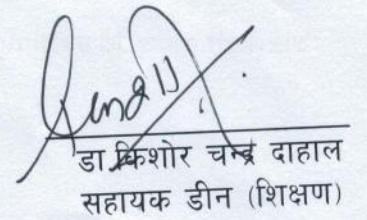 डा किशोर चन्द्र दाहाल
सहायक डीन (शिक्षण)